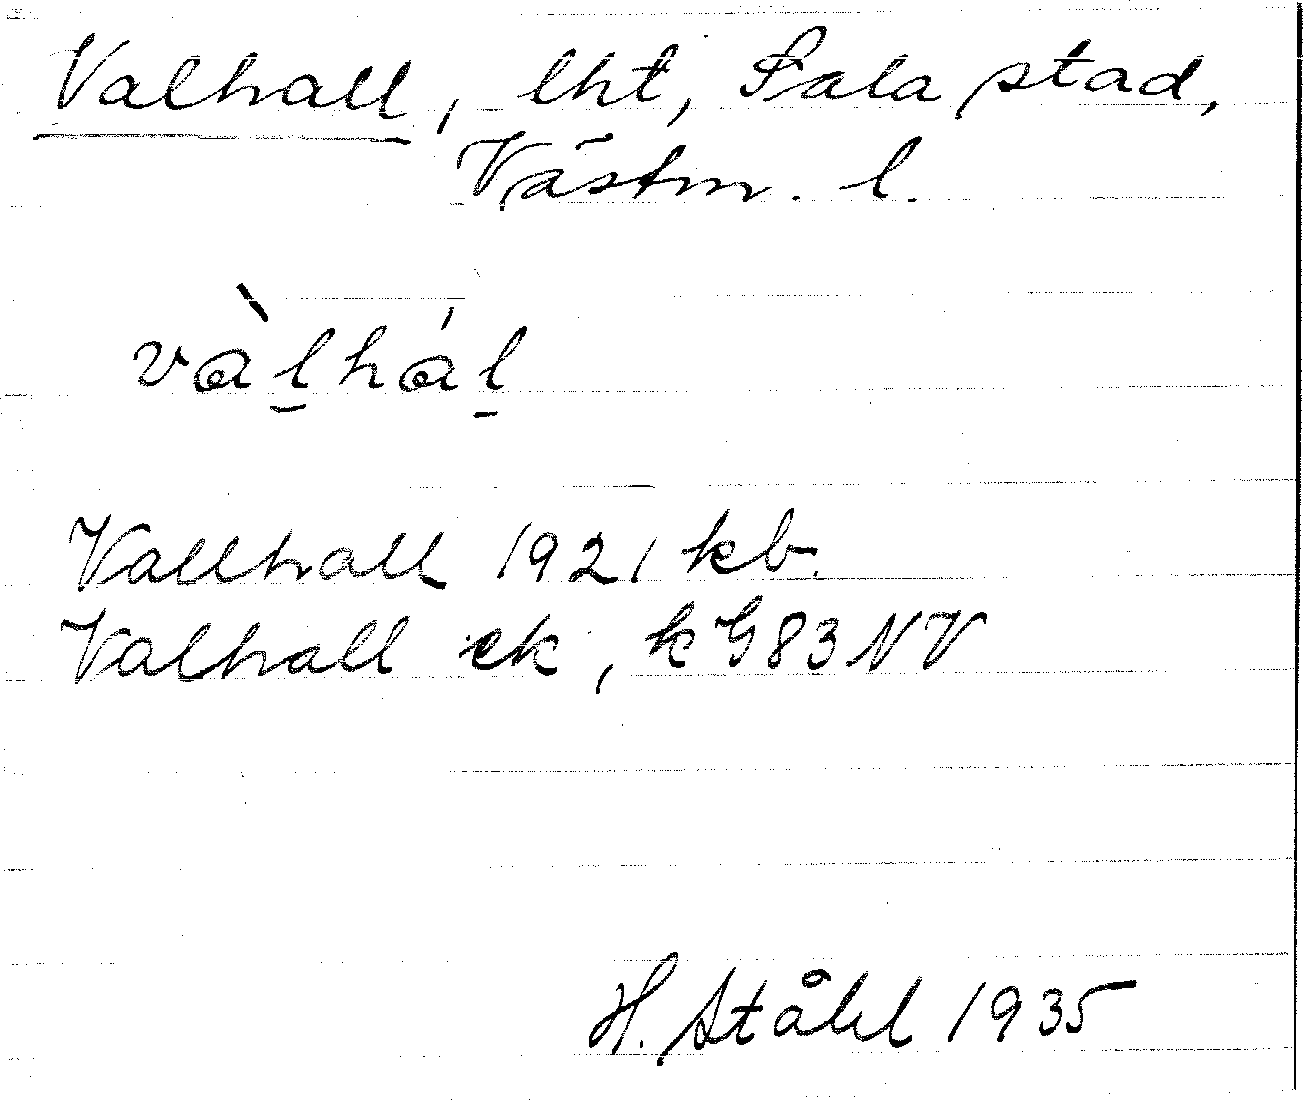 Valhall, lht, Sala stad,
Västm. l.
vàl̠hál̠
Vallhall 1921 kb.
Valhall ek, kG83NV
H. Ståhl 1935